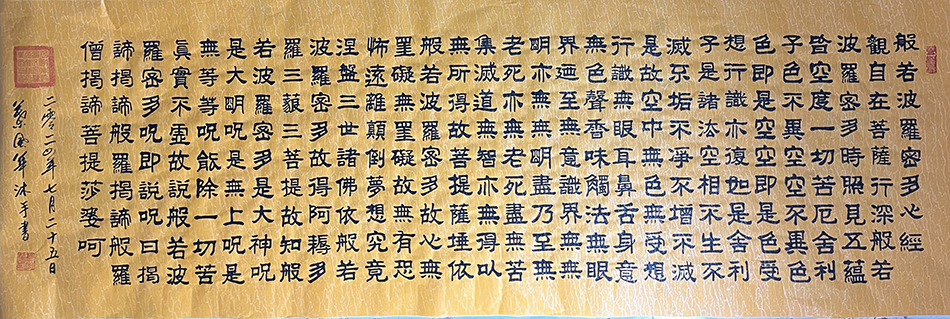 般若波羅密多心經
觀自在菩薩行深般若
波羅密多時照見五蘊
皆空度一切苦厄舍利
子色不異空空不異色
色即是空空即是色受
想行識亦復如是舍利
子是諸法空相不生不
滅不垢不凈不增不滅
是故空中無色無受想
行識無眼耳鼻舌身意
無色聲香味觸法無眼
界廼至無意識界無無
明亦無無明盡乃至無
老死亦無老死盡無苦
集滅道無智亦無得以
無所得故菩提薩埵依
般若波羅密多故心無
罣礙無罣礙故無有恐
怖遠離顛倒夢想究竟
涅盤三世諸佛依般若
波羅密多故得阿耨多
羅三藐三菩提故知般
若波羅密多是大神咒
是大明咒是無上咒是
無等等咒能除一切苦
真實不虛故說般若波
羅密多咒即說咒曰揭
諦揭諦般羅揭諦般羅
僧揭諦菩提莎婆呵
二零一四年七月二十五日
沐手書